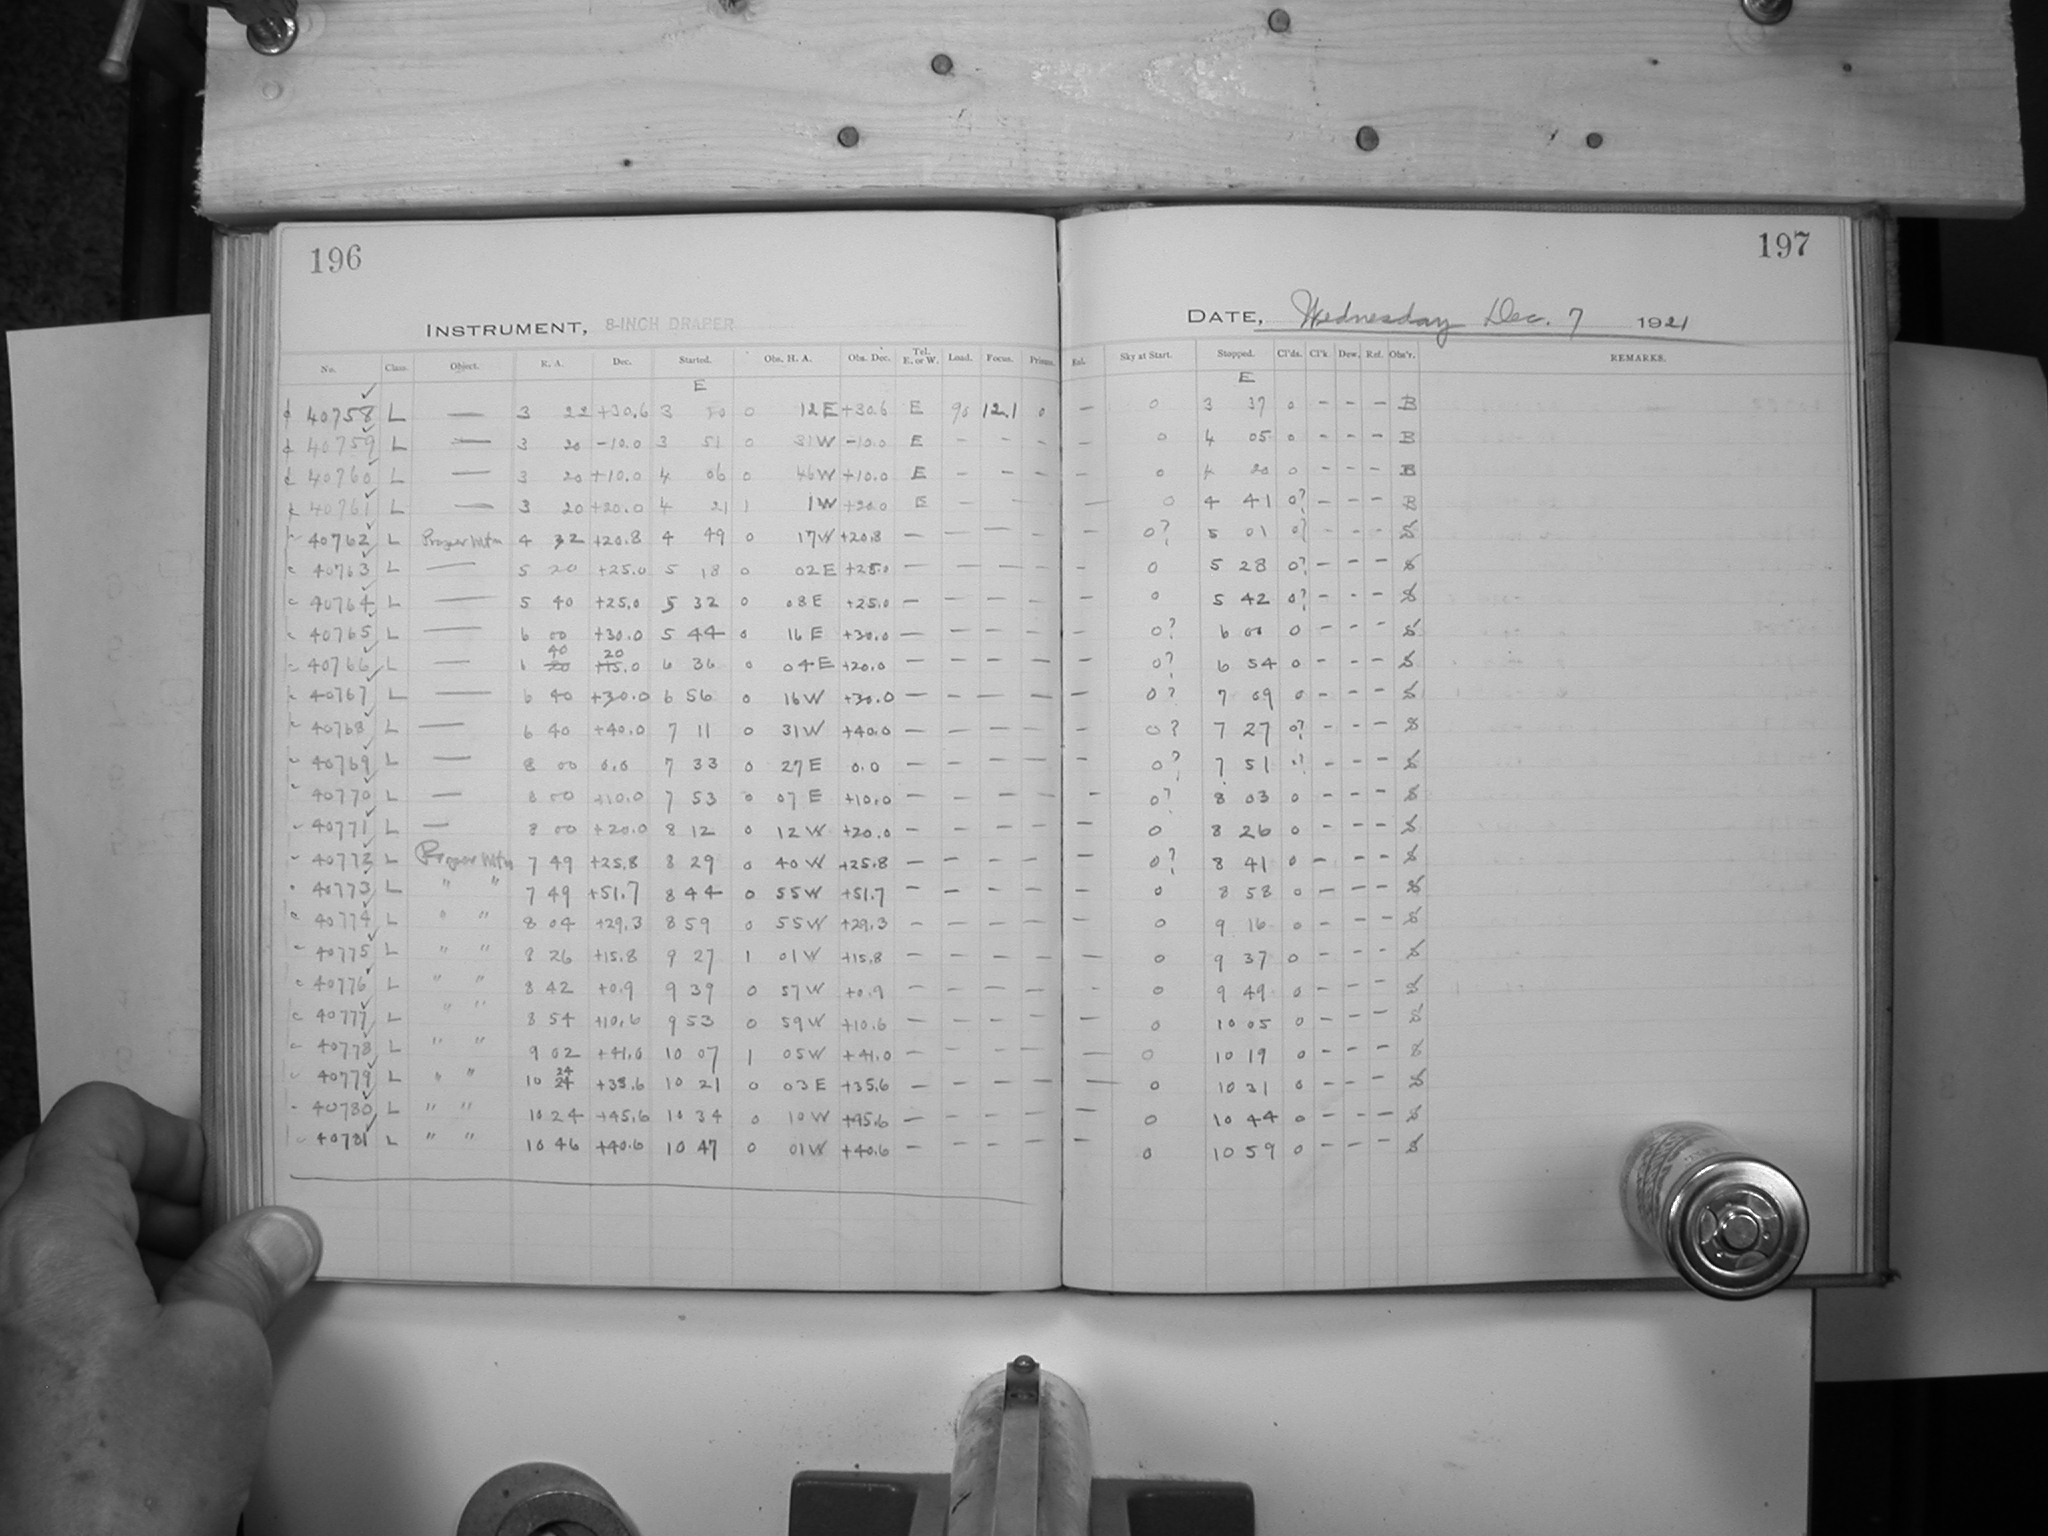 196
197
INSTRUMENT, 8-INCH DRAPER
DATE, Wednesday Dec. 7 1921
No. Class. Object. R. A. Dec. Started. Obs. H. A. Obs. Dec. Tel. E. or W. Load. Focus. Prisms. Sky at Start. Stopped. Cl'ds. Cl'k. Dew. Ref. Obs'r. REMARKS.
E E
40758 L — 3 22 +30.6 3 0 12 E +30.6 E 90 12.1 0 — 0 3 37 0 - - - B
40759 L — 3 20 -10.0 3 51 0 31 W -10.0 E - - - - 0 4 05 0 - - - B
40760 L — 3 20 +10.0 4 06 0 46 W +10.0 E - - - - 0 4 20 0 - - - B
40761 L — 3 20 +20.0 4 21 1 1 W +20.0 E - - - - 0 4 41 0? - - - B
40762 L Proper Mtn 4 32 +20.8 4 49 0 17 W +20.8 - - - - - 0? 5 01 0? - - - S
40763 L — 5 20 +25.0 5 18 0 02 E +25.0 - - - - - 0 5 28 0? - - - S
40764 L — 5 40 +25.0 5 32 0 08 E +25.0 - - - - - 0 5 42 0? - - - S
40765 L — 6 00 +30.0 5 44 0 16 E +30.0 - - - - - 0? 6 00 0 - - - S
40 20
40766 L — 6 20 +15.0 6 36 0 04 E +20.0 - - - - - 0? 6 54 0 - - - S
40767 L — 6 40 +30.0 6 56 0 16 W +30.0 - - - - - 0? 7 09 0 - - - S
40768 L — 6 40 +40.0 7 11 0 31 W +40.0 - - - - - 0? 7 27 0? - - - S
40769 L — 8 00 0.0 7 33 0 27 E 0.0 - - - - - 0? 7 51 0? - - - S
40770 L — 8 00 +10.0 7 53 0 07 E +10.0 - - - - - 0? 8 03 0 - - - S
40771 L — 8 00 +20.0 8 12 0 12 W +20.0 - - - - - 0 8 26 0 - - - S
40772 L Proper Mtn 7 49 +25.8 8 29 0 40 W +25.8 - - - - - 0? 8 41 0 - - - S
40773 L " " 7 49 +51.7 8 44 0 55 W +51.7 - - - - - 0 8 58 0 - - - S
40774 L " " 8 04 +29.3 8 59 0 55 W +29.3 - - - - - 0 9 16 0 - - - S
40775 L " " 8 26 +15.8 9 27 1 01 W +15.8 - - - - - 0 9 37 0 - - - S
40776 L " " 8 42 +0.9 9 39 0 57 W +0.9 - - - - - 0 9 49 0 - - - S
40777 L " " 8 54 +10.6 9 53 0 59 W +10.6 - - - - - 0 10 05 0 - - - S
40778 L " " 9 02 +41.0 10 07 1 05 W +41.0 - - - - - 0 10 19 0 - - - S
24
40779 L " " 10 24 +35.6 10 21 0 03 E +35.6 - - - - - 0 10 31 0 - - - S
40780 L " " 10 24 +45.6 10 34 0 10 W +45.6 - - - - - 0 10 44 0 - - - S
40781 L " " 10 46 +40.6 10 47 0 01 W +40.6 - - - - - 0 10 59 0 - - - S